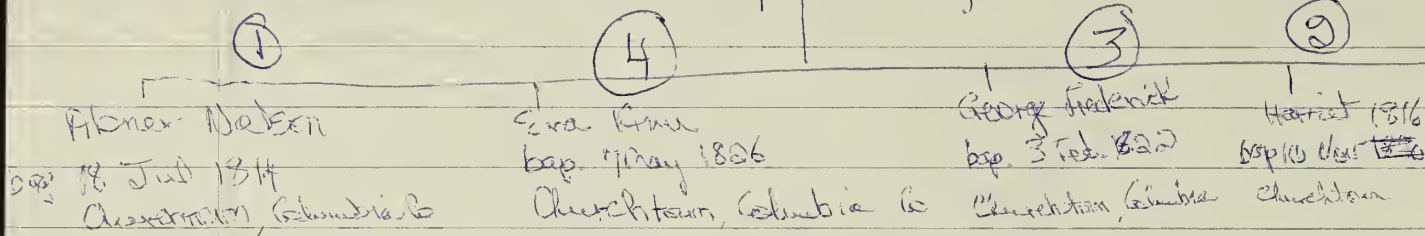 ① ④ ③ ②
Abner Nelson
bap. 18 Jul 1814
Churchtown, Columbia Co
Eva
bap. 7 May 1826
Churchtown, Columbia Co
George Frederick
bap. 3 Feb. 1822
Churchtown, Columbia
Harriet 1816
bap 10 Nov
Churchtown